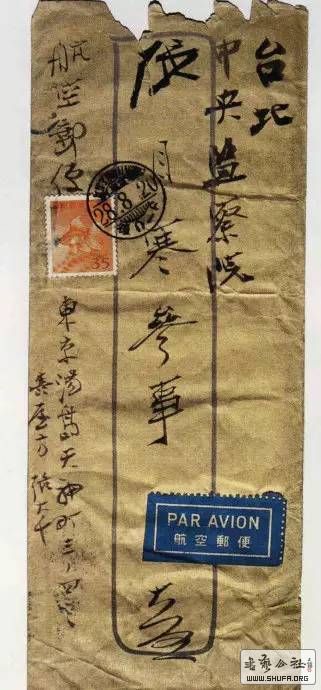 台北
中央监察院
張目寒參事
航空郵便
28.8.20
35
東京湯島天神町三ノ四
張大千
PAR AVION
航空郵便
書藝公社
WWW.SHUFA.ORG